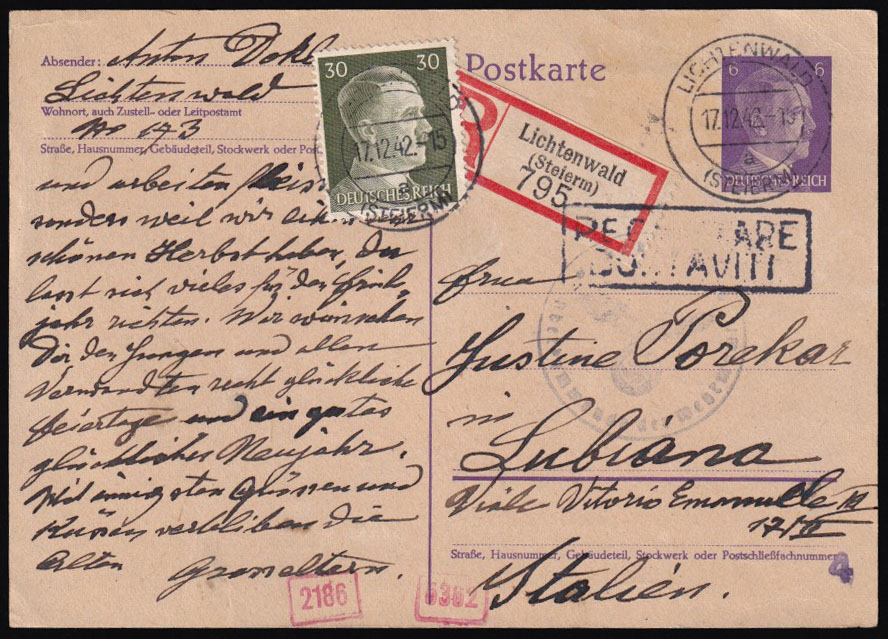 Absender: Anton
Lichtenwald
Wohnort, auch Zustell- oder Leitpostamt
No 143
Straße, Hausnummer, Gebäudeteil, Stockwerk oder Pos
und arbeiten
sonders weil wir
schönen Herbst haben, Da
lasst sich vieles für das früh
jahr richten. Wir wünschen
Dir den Jungen und allen
Verwandten recht glückliche
feiertage und ein gutes
glückliches Neujahr.
Mit innigsten Grüssen und
Küssen verbleiben die
alten Grosseltern.
2186
5382
30 30
DEUTSCHES REICH
17.12.42.-15
a
(STEIERM)
Postkarte
Lichtenwald
(Steierm)
795
LICHTENWALD
17.12.42.-15
a
(STEIERM)
6 6
DEUTSCHES REICH
frau
Justine Porekar
in
Lubiana
Viale Vitorio Emanuele III
17/II
Straße, Hausnummer, Gebäudeteil, Stockwerk oder Postschließfachnummer
4
Italien.